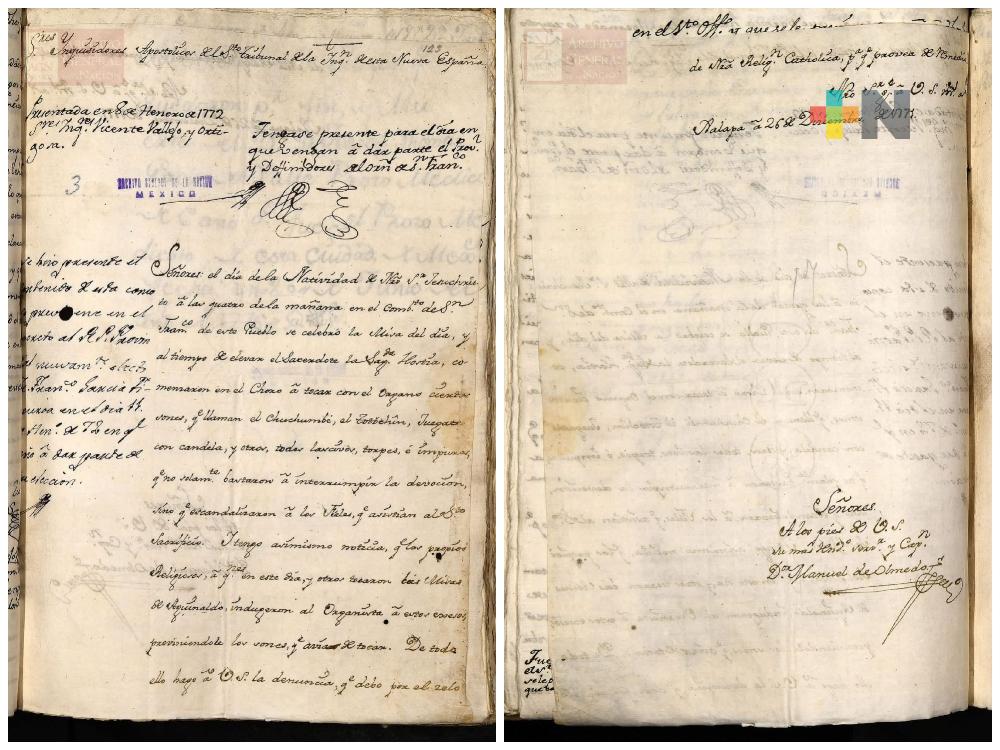 Inquisidores Apostolicos del Sto Tribunal de la Inqn de esta Nueva España
123
ARCHIVO GENERAL
Presentada en 8 de Henero de 1772
sres Inqres Vicente Vallejo, y Orti-
gosa.
Tengase presente para el dia en
que vengan â dar parte el Provl
y Definidores del orñ de Sn Franco
3
ARCHIVO GENERAL DE LA NACION
MEXICO
se hizo presente el
contenido de esta como
se previene en el
decreto al R. P. Provin
nuevamte electo
Fr. Franco Garcia Fi-
gueroa en el dia 11
de Heno de 72 en q
vino â dar parte de
su eleccion.
Señores: el dia de la Natividad de Nrô Sr Jesuchris-
to â las quatro de la mañana en el Convto de Sn
Franco de este Pueblo se celebró la Misa del dia, y
al tiempo de elevar el Sacerdote la Sagda Hostia, co-
menzaron en el Choro â tocar con el Organo ciertos
sones, qe llaman el Chuchumbé, el Totochin, Juegate
con candela, y otros, todos lascivos, torpes, é impuros,
qe no solamte bastaron â interrumpir la devocion,
sino qe escandalizaron â los Fieles, qe asistian al Sto
Sacrificio. Y tengo asimismo noticia, qe los propios
Religiosos, â qnes en este dia, y otros tocaron las Misas
de Aguinaldo, indugeron al Organista â estos excesos,
previniendole los sones, qe avia de tocar. De todo
ello hago â V. S. la denuncia, qe debo por el zelo
en el Sto Offo y que solo
ARCHIVO GENERAL
de Nrâ Religon Catholica, pa qe provea de
Xalapa â 26 de Diciembre de 1771.
N
ARCHIVO GENERAL DE LA NACION
MEXICO
Señores.
A los pies de V. S.
su mas rendo servor y Capn
Dn Manuel de Olmedo
Fue